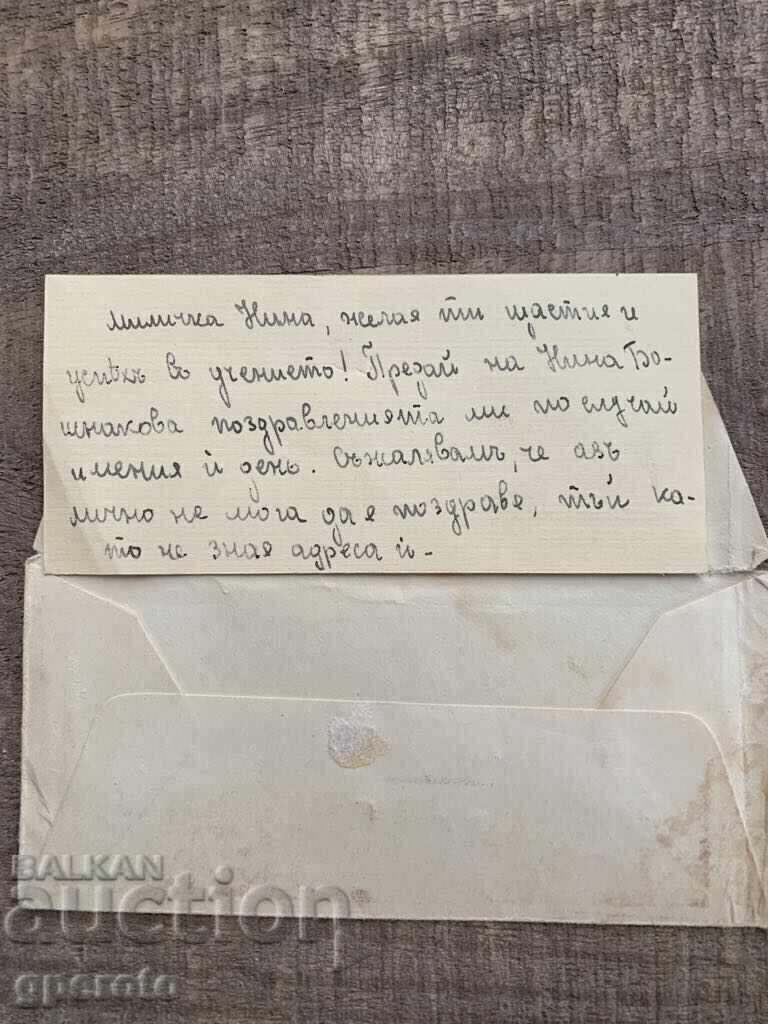 Миличка Нина, желая ти щастия и
успѣхъ въ учението! Предай на Нина Бо-
шнакова поздравленията ми по случай
имения ѝ день. Съжалявамъ, че азъ
лично не мога да я поздравя, тъй ка-
то не зная адреса ѝ.
BALKAN
auction
gperoto